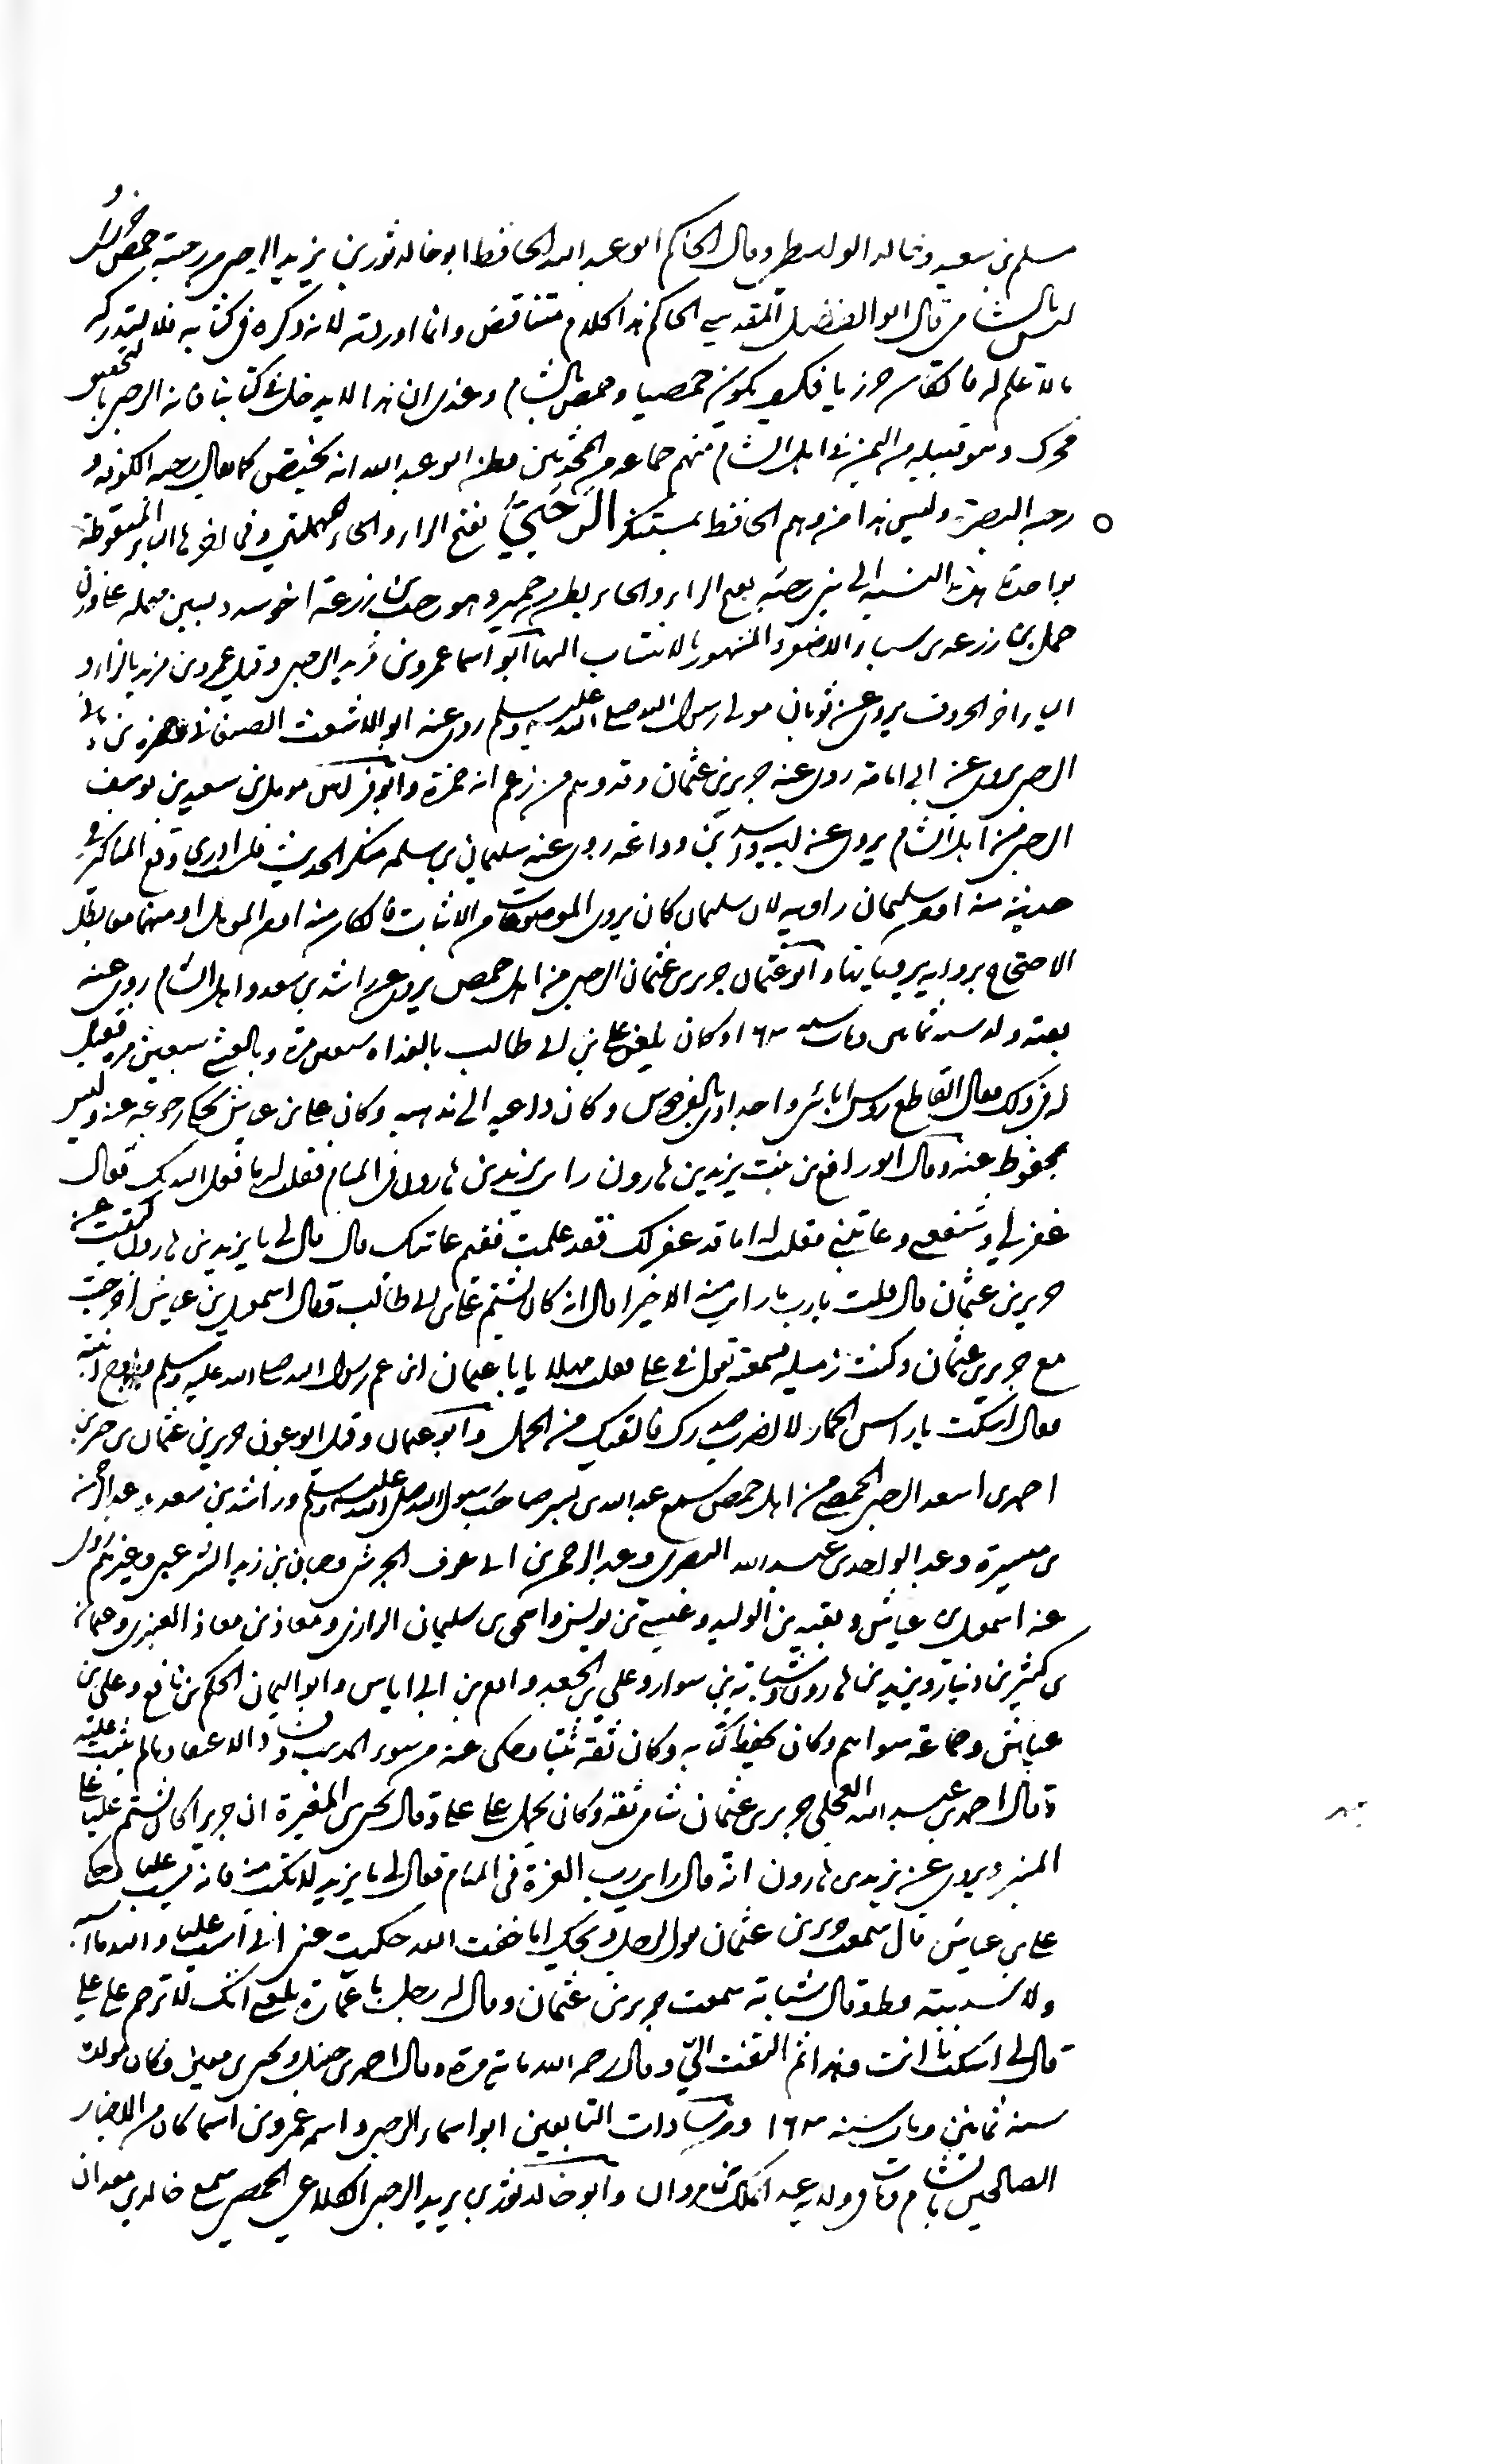 مسلم بن سعيد وخالد الواسطي وقال الحاكم ابو عبد الله الحافظ ابو خالد ثور بن يزيد الرحبي من رحبة حمص
بالشام قال ابو الفضل المقدسي الحاكم هذا كلام متناقض وانما اوردته لانه ذكره في كتابه فلا يستدركه
من لا علم له فاذا كان جزريا فكيف يكون حمصيا وحمص بالشام وعندي ان هذا لا يدخل في كتابنا فانه الرحبي بالتحقيق
محرك وهو قبيلة من اليمن في اهل الشام منهم جماعة من المحدثين فظن ابو عبد الله انه يختص كما يقال رحبة الكوفة و
رحبة البصرة وليس هذا من وهم الحافظ بمستنكر الرَحَبِيُّ بفتح الراء والحاء المهملتين وفي اخرها الباء المنقوطة
بواحدة هذه النسبة الى بني رحبة بفتح الراء والحاء بطن من حمير وهو رحبة بن زرعة اخو سدد بسين مهملة على وزن
حمل بن زرعة بن سبا الاصغر والمشهور بالانتساب اليها ابو اسما عمرو بن مرثد الرحبي وقيل عمرو بن مزيد بالزاء و
الياء اخر الحروف يروي عن ثوبان مولى رسول الله صلى الله عليه وسلم روى عنه ابو الاشعث الصنعاني وضمرة بن
الرحبي يروي عن ابي امامة روى عنه حريز بن عثمان وقد وهم من زعم انه حمزة وابو فراس مومل بن سعيد بن يوسف
الرحبي من اهل الشام يروي عن ابيه واسد بن وداعة روى عنه سليمان بن سلمة منكر الحديث فلست ادري وقع المناكير في
حديثه منه او من سليمان راويه لان سليمان كان يروي الموضوعات من الاثبات فان كان منه او من المومل او منهما معا بطل
الاحتجاج برواية يرويانها وابو عثمان حريز بن عثمان الرحبي من اهل حمص يروي عن راشد بن سعد واهل الشام روى عنه
بقية ولد سنة ثمانين ومات سنة ١٦٣ وكان يلعن علي بن ابي طالب بالغداة سبعين مرة وبالعشي سبعين مرة فقيل
له في ذلك فقال القاطع رؤس ابائي واجدادي بالفؤوس وكان داعية الى مذهبه وكان علي بن عياش يحكي رجوعه عنه وليس
بمحفوظ عنه وقال ابو رافع بن بنت يزيد بن هارون رايت يزيد بن هارون في المنام فقلت له ما فعل الله بك فقال
غفر لي وشفعني وعاتبني فقلت له اما قد غفر لك فقد علمت ففيم عاتبك قال قال لي يا يزيد بن هارون كتبت عن
حريز بن عثمان قال قلت يا رب ما رايت منه الا خيرا قال انه كان يشتم علي بن ابي طالب وقال اسمعيل بن عياش خرجت
مع حريز بن عثمان وكنت زميله فسمعته يقول في علي فقلت مهلا يا با عثمان ابن عم رسول الله صلى الله عليه وسلم وزوج ابنته
فقال اسكت يا راس الحمار لا اضرب صدرك فالقيك من الحمل وابو عثمان وقيل ابو عون حريز بن عثمان بن جبر بن
احمر بن اسعد الرحبي الحمصي من اهل حمص سمع عبد الله بن بسر صاحب رسول الله صلى الله عليه وسلم وراشد بن سعد وعبد الرحمن
بن ميسرة وعبد الواحد بن عبد الله النصري وعبد الرحمن بن ابي عوف الجرشي وحبان بن زيد الشرعبي وغيرهم روى
عنه اسمعيل بن عياش وبقية بن الوليد وعيسى بن يونس واسحق بن سليمان الرازي ومعاذ بن معاذ العنبري وعثمان
بن كثير بن دينار ويزيد بن هارون وشبابة بن سوار وعلي بن الجعد وادم بن ابي اياس وابو اليمان الحكم بن نافع وعلي بن
عياش وجماعة سواهم وكان يحفظ كتابه وكان ثقة ثبتا وحكي عنه من سوء المذهب وفساد الاعتقاد ما لم يثبت عليه
وقال احمد بن عبد الله العجلي حريز بن عثمان شامي ثقة وكان يحمل على علي وقال يحيى بن المغيرة ان حريزا كان يشتم عليا على
المنبر ويروى عن يزيد بن هارون انه قال رايت رب العزة في المنام فقال لي يا يزيد لا تكتب منه فانه يسب عليا وحكى
علي بن عياش قال سمعت حريز بن عثمان يقول لرجل ويحك اما خفت الله حكيت عني اني اسب عليا والله ما اسبه
ولا سببته قط وقال شبابة سمعت حريز بن عثمان وقال له رجل يا با عثمان بلغني انك لا ترحم على علي
قال لي اسكت ما انت وهذا ثم التفت الي وقال رحمه الله ماية مرة وقال احمد بن حنبل ويحيى بن معين وكان مولده
سنة ثمانين ومات سنة ١٦٣ ومن سادات التابعين ابو اسماء الرحبي واسمه عمرو بن اسما كان من الاخيار
الصالحين بالشام مات في ولاية عبد الملك بن مروان وابو خالد ثور بن يزيد الرحبي الكلاعي الحمصي سمع خالد بن معدان